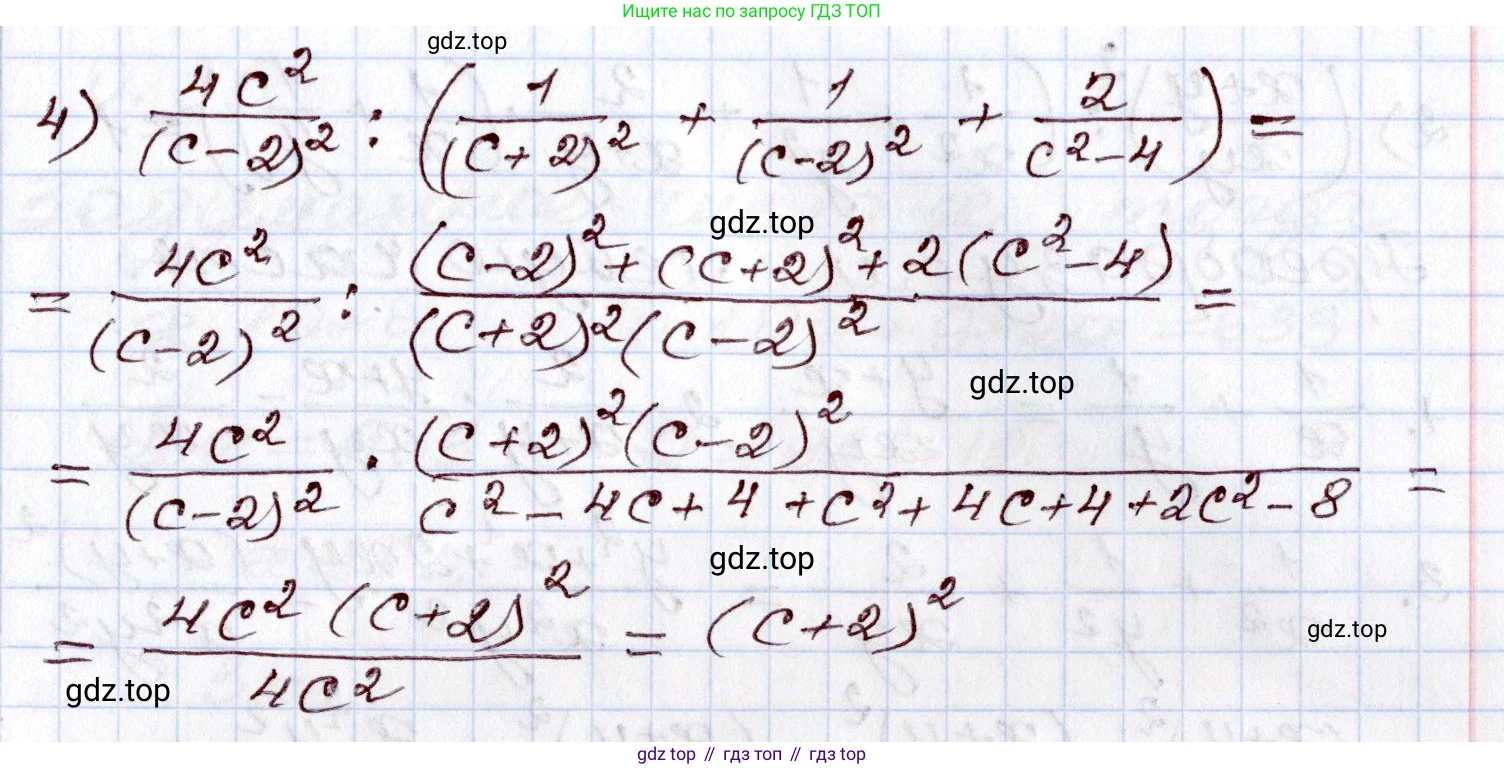 Ищите нас по запросу ГДЗ ТОП
gdz.top
4) 4c²/(c-2)² : (1/(c+2)² + 1/(c-2)² + 2/(c²-4)) =
gdz.top
= 4c²/(c-2)² : ((c-2)²+(c+2)²+2(c²-4))/((c+2)²(c-2)²) =
gdz.top
= 4c²/(c-2)² · ((c+2)²(c-2)²)/(c²-4c+4+c²+4c+4+2c²-8) =
gdz.top
= 4c²(c+2)²/4c² = (c+2)²
gdz.top
gdz.top
gdz top // гдз топ // гдз top